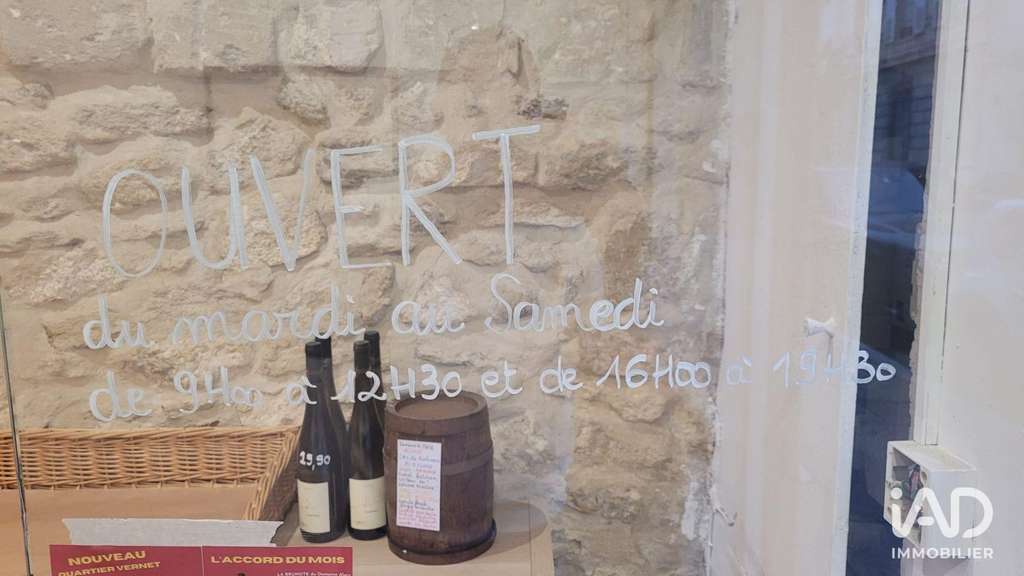 OUVERT
du mardi au Samedi
de 9H00 à 12H30 et de 16H00 à 19H30
29,90
NOUVEAU
QUARTIER VERNET
L'ACCORD DU MOIS
iAD
IMMOBILIER